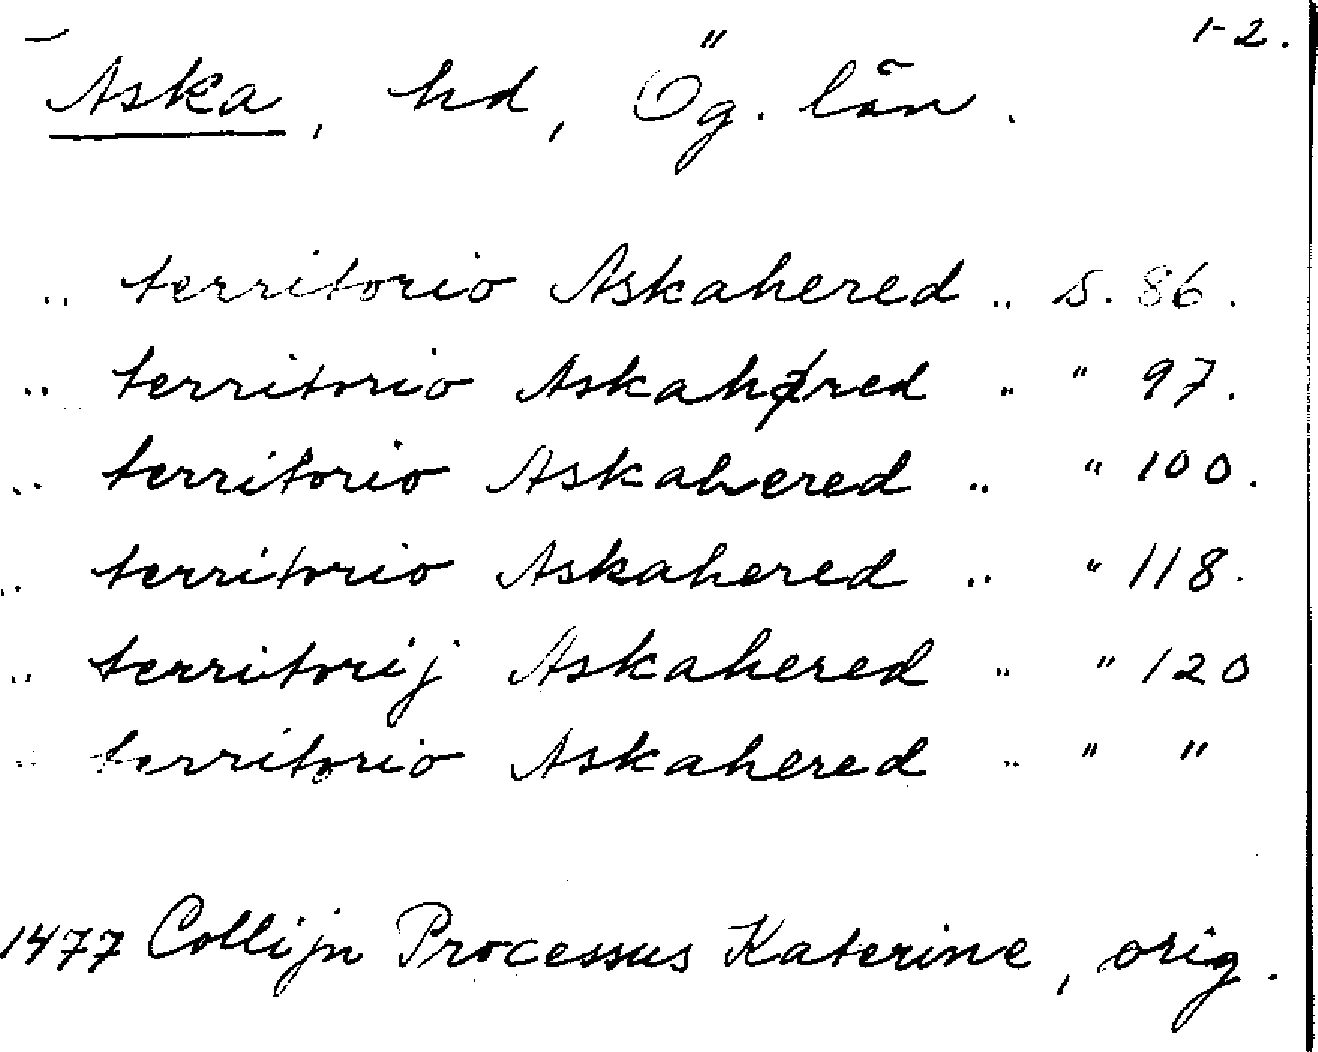 1-2.
Aska, hd, Ög. län.
.. territorio Askahered .. S. 86.
.. territorio Askahøred .. " 97.
.. territorio Askahered .. " 100.
.. territorio Askahered .. " 118.
.. territorij Askahered .. " 120
.. territorio Askahered .. " "
1477 Collijn Processus Katerine, orig.